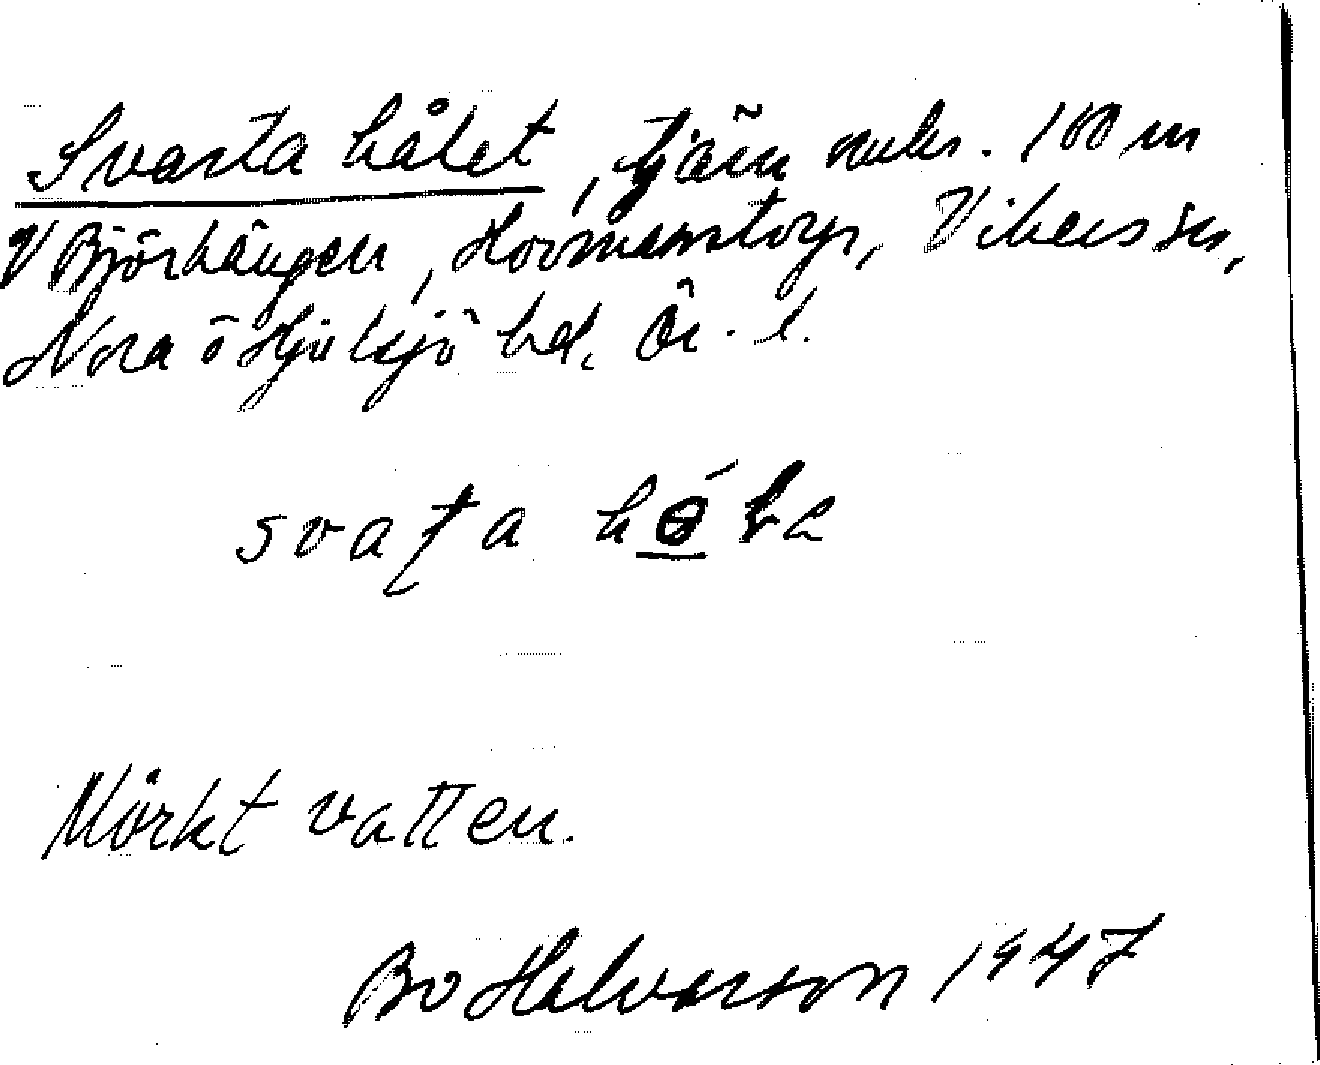 Svarta hålet, tjärn 100 m
V Björhängen, Hovmanstorp, Vikers sn,
Nora o Hjulsjö hd. Ör. l.
svaʈa
Mörkt vatten.
Bo Halvarson 1947